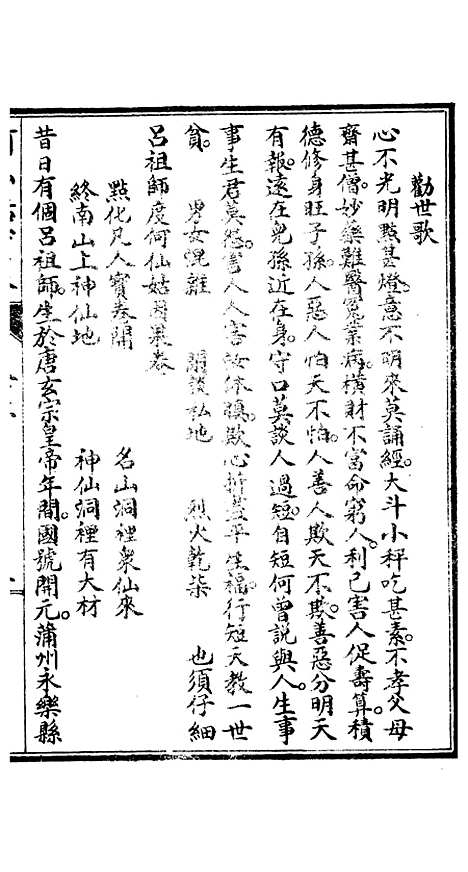 勸世歌
心不光明點甚燈。意不明來莫誦經。大斗小秤吃甚素。不孝父母
齋甚僧。妙藥難醫冤業病。橫財不富命窮人。利己害人促壽算。積
德修身旺子孫。人惡人怕天不怕。人善人欺天不欺。善惡分明天
有報。遠在兒孫近在身。守口莫談人過短。自短何曾說與人。生事
事生君莫怨。害人人害汝休嗔。欺心折盡平生福。行短天教一世
貧。　男女混雜　閒談私地　烈火乾柴　也須仔細
呂祖師度何仙姑因果卷
點化凡人寶卷開　名山洞裡衆仙來
終南山上神仙地　神仙洞裡有大材
昔日有個呂祖師。生於唐玄宗皇帝年間。國號開元。蒲州永樂縣